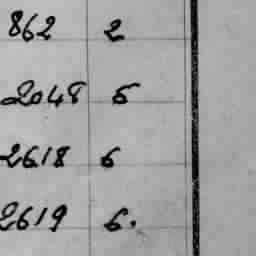 862 2
2048 5
2618 6
2619 6.